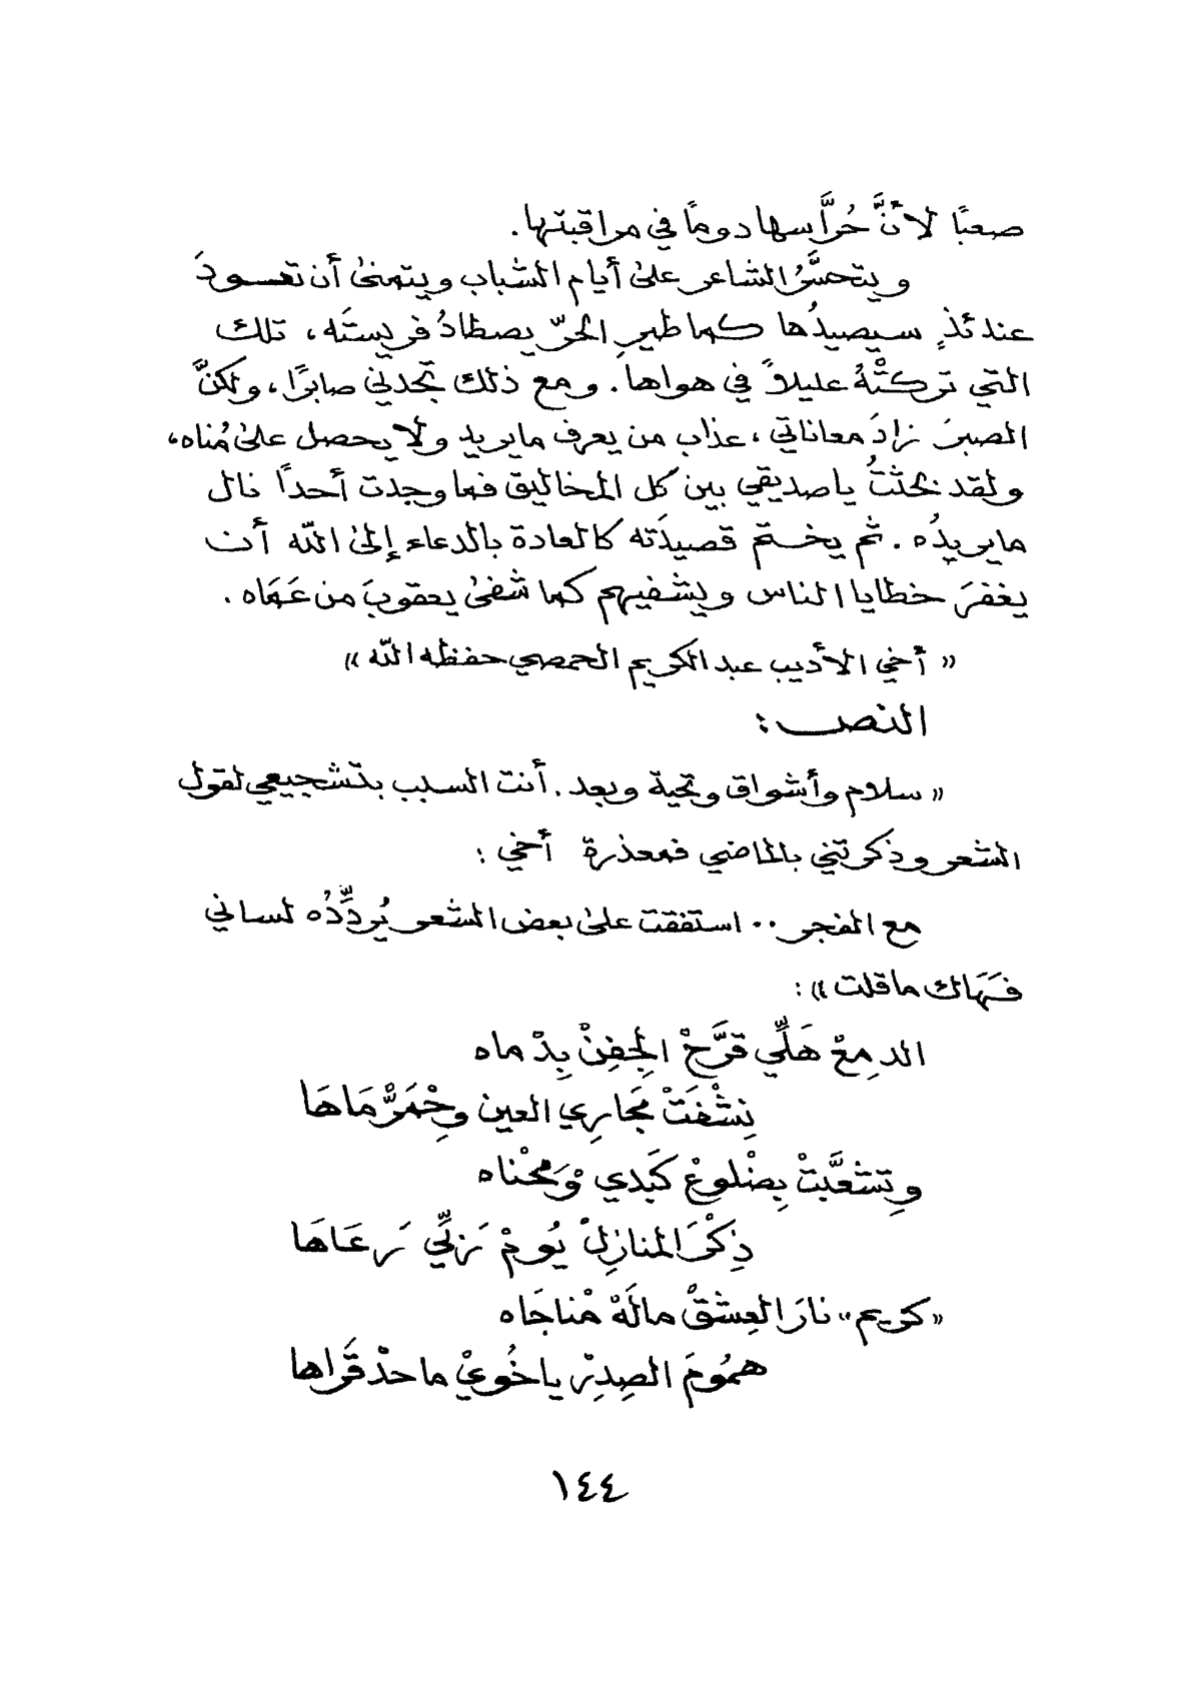 صعبًا لأنَّ حُرَّاسها دومًا في مراقبتها.
ويتحسَّرُ الشاعر على أيام الشباب ويتمنى أن تعودَ
عندئذٍ سيصيدُها كما طيرِ الحرّ يصطادُ فريستَه، تلك
التي تركتْهُ عليلاً في هواها. ومع ذلك تجدني صابرًا، ولكنَّ
الصبرَ زادَ معاناتي، عذاب من يعرف مايريد ولا يحصل على مُناه،
ولقد بحثتُ ياصديقي بين كل المخاليق فما وجدت أحداً نال
مايريدُه. ثم يختم قصيدَته كالعادة بالدعاء إلى الله أن
يغفرَ خطايا الناس ويشفيهم كما شفى يعقوبَ من عَمَاه.
« أخي الأديب عبد الكريم الحمصي حفظه الله »
النص:
« سلام وأشواق وتحية وبعد. أنت السبب بتشجيعي لقول
الشعر وذكرتني بالماضي فمعذرة أخي :
مع الفجر .. استفقت على بعض الشعر يُردِّدُه لساني
فَهَاك ماقلت » :
الدمِعْ هَلِّي قرَّحْ الجِفِنْ بِدْماه
نِشْفَتْ مَجَارِي العين وِحْمَرّْمَاهَا
وِتشعَّبتْ بِضْلوعْ كَبَدي وْمَحْناه
ذِكْرَ المنازِلْ يُومْ نَزلِّي نَرعَاهَا
«كريم» نارَ العِشقْ مالَهْ مْناجَاه
همُومَ الصِدِرْ ياخُويْ ماحدْ قَراها
١٤٤